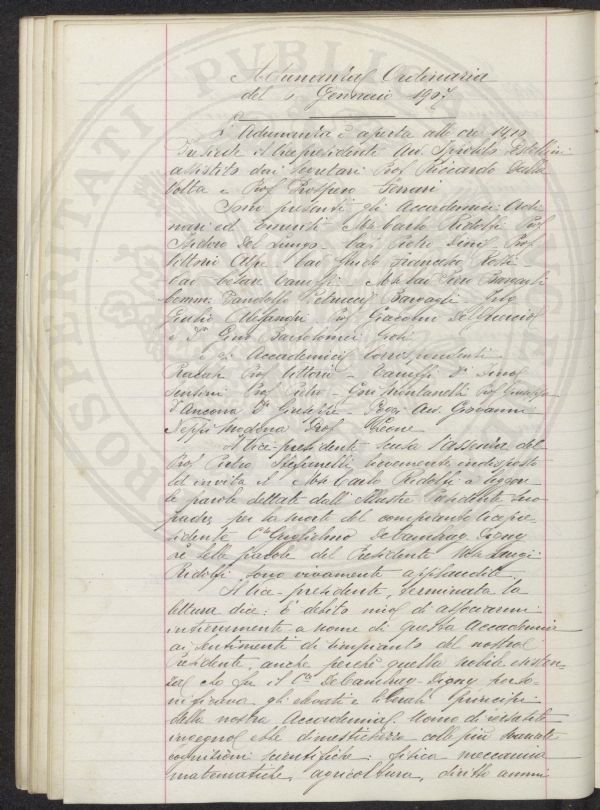 Adunanza Ordinaria
del Gennaio 1907
L'Adunanza è aperta alle ore 14,10
Presiede il Vicepresidente Avv.
assistito dai Segretari Prof. Riccardo Dalla
Volta e Prof. Prospero Ferrari
Sono presenti gli Accademici: Ordi-
nari ed Emeriti Mse Carlo Ridolfi Prof.
Isidoro Del Lungo Cav. Pietro Prof.
Vittorio Alpe Cav. Guido Francesco
Cav. Cesare Vannuzzi Mse Cav. Piero Bargagli
Comm. Pandolfo Petrucci Bargagli Ing.
Giulio Alessandri Prof. Giacomo Del Guercio
e Dr Gino Bartolommei Gioli
e gli Accademici Corrispondenti
Racah Prof. Vittorio Vannuzzi Dr
Sestini Prof. Pietro Gori Montanelli Prof. Giuseppe
D'Ancona Dr Giuseppe Avv. Giovanni
Neppi Modona Prof. Leone
Il Vice-presidente scusa l'assenza del
Prof. Pietro Stefanelli lievemente indisposto
ed invita il Mse Carlo Ridolfi a leggere
le parole dettate dall'Illustre Presidente suo
padre per la morte del compianto Vicepre-
sidente Cte Guglielmo De Cambray Digny
le belle parole del Presidente Mse Luigi
Ridolfi sono vivamente applaudite.
Il Vice-presidente, terminata la
lettura dice: È debito mio di associarmi
intieramente a nome di questa Accademia
ai sentimenti di rimpianto del nostro
Presidente, anche perchè quella nobile esisten-
za che fu il Cte De Cambray-Digny perso-
nificava gli elevati e liberali principii
della nostra Accademia. Uomo di versatile
ingegno ebbe dimestichezza colle più svariate
cognizioni scientifiche: fisica meccanica
matematiche, agricoltura, diritto ammi
PROSPERITATI PUBLICAE